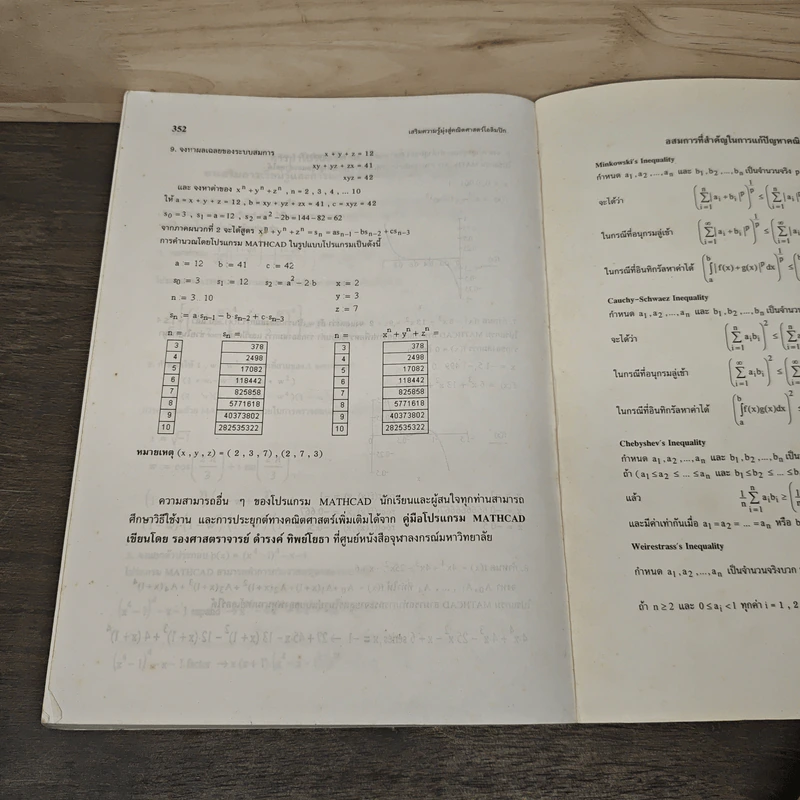 352
เสริมความรู้มุ่งสู่คณิตศาสตร์โอลิมปิก
9. จงหาผลเฉลยของระบบสมการ x + y + z = 12
xy + yz + zx = 41
xyz = 42
และ จงหาค่าของ xⁿ + yⁿ + zⁿ , n = 2 , 3 , 4 , ... 10
ให้ a = x + y + z = 12 , b = xy + yz + zx = 41 , c = xyz = 42
s₀ = 3 , s₁ = a = 12 , s₂ = a² – 2b = 144 – 82 = 62
จากภาคผนวกที่ 2 จะได้สูตร xⁿ + yⁿ + zⁿ = sₙ = asₙ₋₁ – bsₙ₋₂ + csₙ₋₃
การคำนวณโดยโปรแกรม MATHCAD ในรูปแบบโปรแกรมเป็นดังนี้
a := 12 b := 41 c := 42
s₀ := 3 s₁ := 12 s₂ := a² – 2·b x = 2
n := 3 .. 10 y = 3
z = 7
sₙ := a·sₙ₋₁ – b·sₙ₋₂ + c·sₙ₋₃
n = sₙ = n = xⁿ + yⁿ + zⁿ =
3 378 3 378
4 2498 4 2498
5 17082 5 17082
6 118442 6 118442
7 825858 7 825858
8 5771618 8 5771618
9 40373802 9 40373802
10 282535322 10 282535322
หมายเหตุ (x , y , z) = ( 2 , 3 , 7 ) , ( 2 , 7 , 3 )
ความสามารถอื่น ๆ ของโปรแกรม MATHCAD นักเรียนและผู้สนใจทุกท่านสามารถ
ศึกษาวิธีใช้งาน และการประยุกต์ทางคณิตศาสตร์เพิ่มเติมได้จาก คู่มือโปรแกรม MATHCAD
เขียนโดย รองศาสตราจารย์ ดำรงค์ ทิพย์โยธา ที่ศูนย์หนังสือจุฬาลงกรณ์มหาวิทยาลัย
อสมการที่สำคัญในการแก้ปัญหาคณิ
Minkowski's Inequality
กำหนด a₁ , a₂ , ..., aₙ และ b₁ , b₂ , ..., bₙ เป็นจำนวนจริง p
จะได้ว่า (∑ᵢ₌₁ⁿ |aᵢ + bᵢ|ᵖ)^(1/p) ≤ (∑ᵢ₌₁ⁿ |aᵢ|ᵖ
ในกรณีที่อนุกรมลู่เข้า (∑ᵢ₌₁^∞ |aᵢ + bᵢ|ᵖ)^(1/p) ≤ (∑ᵢ₌₁^∞ |aᵢ
ในกรณีที่อินทิกรัลหาค่าได้ (∫ₐᵇ |f(x) + g(x)|ᵖ dx)^(1/p) ≤
Cauchy–Schwaez Inequality
กำหนด a₁ , a₂ , ..., aₙ และ b₁ , b₂ , ..., bₙ เป็นจำนว
จะได้ว่า (∑ᵢ₌₁ⁿ aᵢbᵢ)² ≤ (∑ᵢ₌₁ⁿ
ในกรณีที่อนุกรมลู่เข้า (∑ᵢ₌₁^∞ aᵢbᵢ)² ≤ (∑ᵢ₌₁^∞
ในกรณีที่อินทิกรัลหาค่าได้ (∫ₐᵇ f(x)g(x)dx)² ≤
Chebyshev's Inequality
กำหนด a₁ , a₂ , ..., aₙ และ b₁ , b₂ , ..., bₙ เป็น
ถ้า ( a₁ ≤ a₂ ≤ ... ≤ aₙ และ b₁ ≤ b₂ ≤ ... ≤ b
แล้ว (1/n) ∑ᵢ₌₁ⁿ aᵢbᵢ ≥
และมีค่าเท่ากันเมื่อ a₁ = a₂ = ... = aₙ หรือ b
Weirestrass's Inequality
กำหนด a₁ , a₂ , ..., aₙ เป็นจำนวนจริงบวก
ถ้า n ≥ 2 และ 0 ≤ aᵢ < 1 ทุกค่า i = 1 , 2